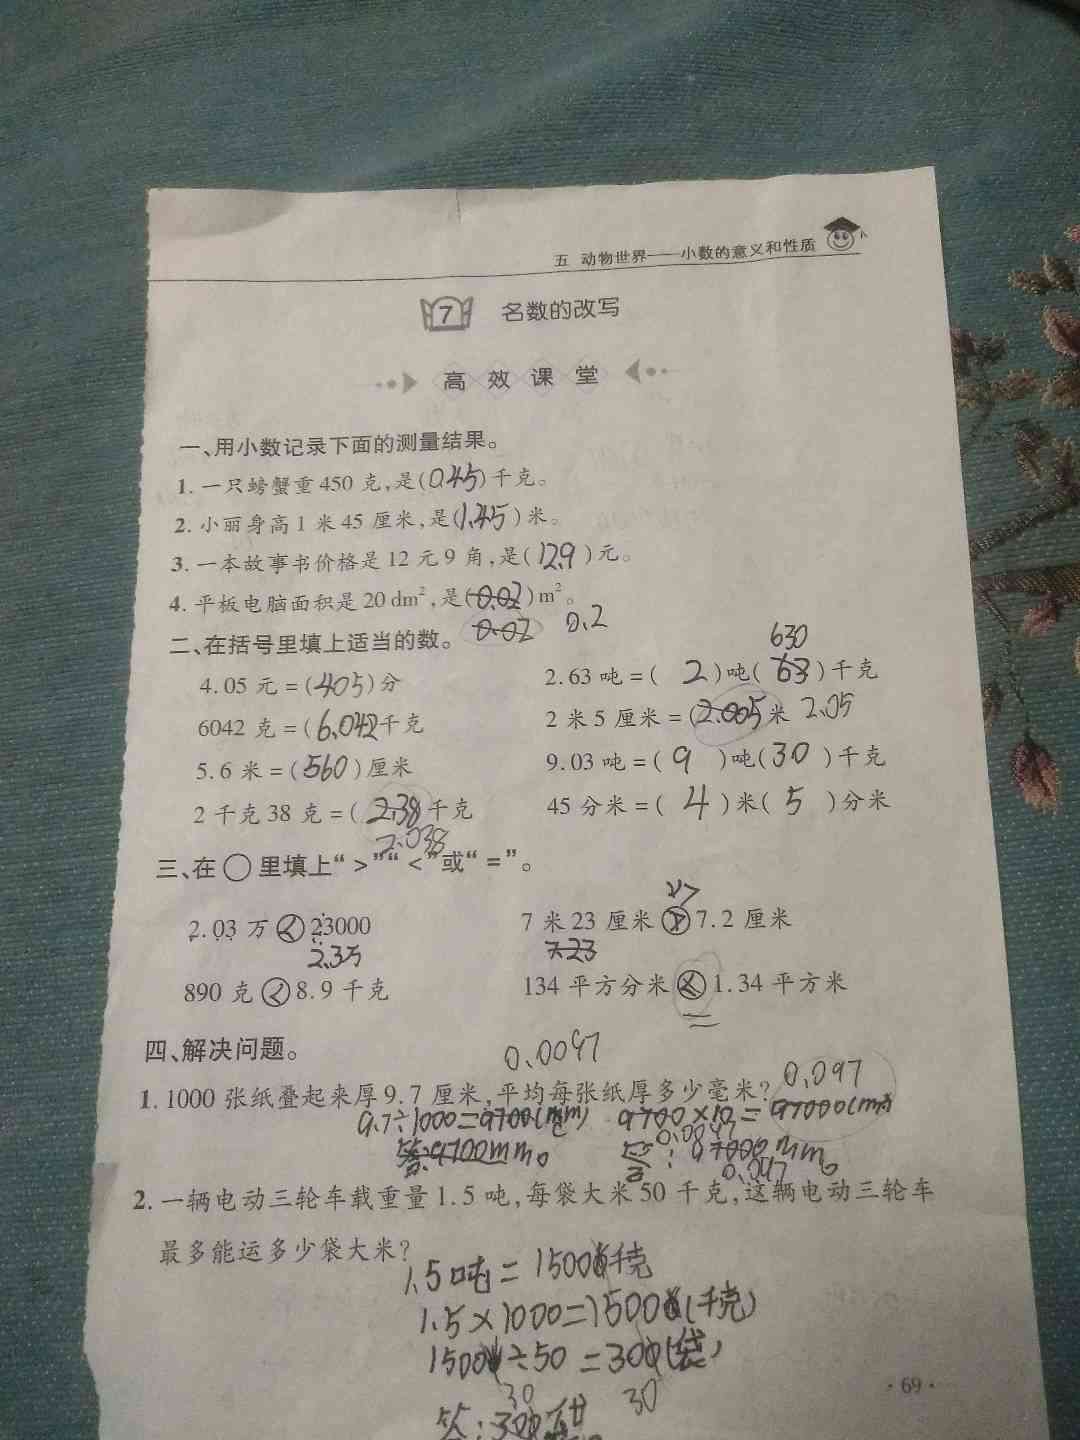 五 动物世界——小数的意义和性质
7 名数的改写
高效课堂
一、用小数记录下面的测量结果。
1. 一只螃蟹重450克,是(0.45)千克。
2. 小丽身高1米45厘米,是(1.45)米。
3. 一本故事书价格是12元9角,是(12.9)元。
4. 平板电脑面积是20 dm²,是(0.02)m²。
0.02 0.2
二、在括号里填上适当的数。
630
4.05元=(405)分 2.63吨=(2)吨(63)千克
6042克=(6.042千克 2米5厘米=(2.005米 2.05
5.6米=(560)厘米 9.03吨=(9)吨(30)千克
2千克38克=(2.38千克 45分米=(4)米(5)分米
2.038
三、在○里填上“>”“<”或“=”。
2.03万<23000 7米23厘米>7.2厘米
2.3万 7.23
890克<8.9千克 134平方分米<1.34平方米
四、解决问题。
0.0097
1. 1000张纸叠起来厚9.7厘米,平均每张纸厚多少毫米? 0.097
9.7÷1000=9700(mm) 9700×10=97000(mm)
0.0097
答:9700mm。 答:97000mm。
0.097
2. 一辆电动三轮车载重量1.5吨,每袋大米50千克,这辆电动三轮车
最多能运多少袋大米?
1.5吨=1500千克
1.5×1000=1500(千克)
1500÷50=300(袋)
30 30
答:300
·69·